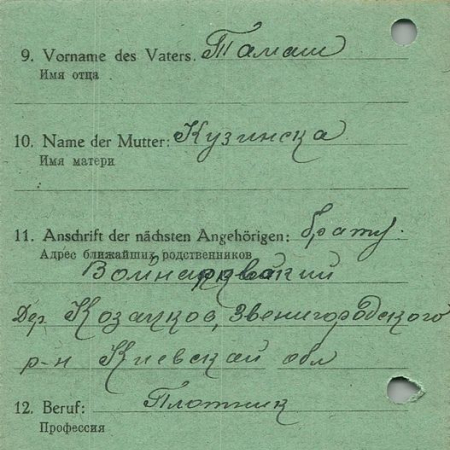 9. Vorname des Vaters. Тамаш
Имя отца
10. Name der Mutter: Кузинска
Имя матери
11. Anschrift der nächsten Angehörigen: брату.
Адрес ближайших родственников
Дер. Козацков, Звенигородского
р-н Киевской обл
12. Beruf: Плотник
Профессия